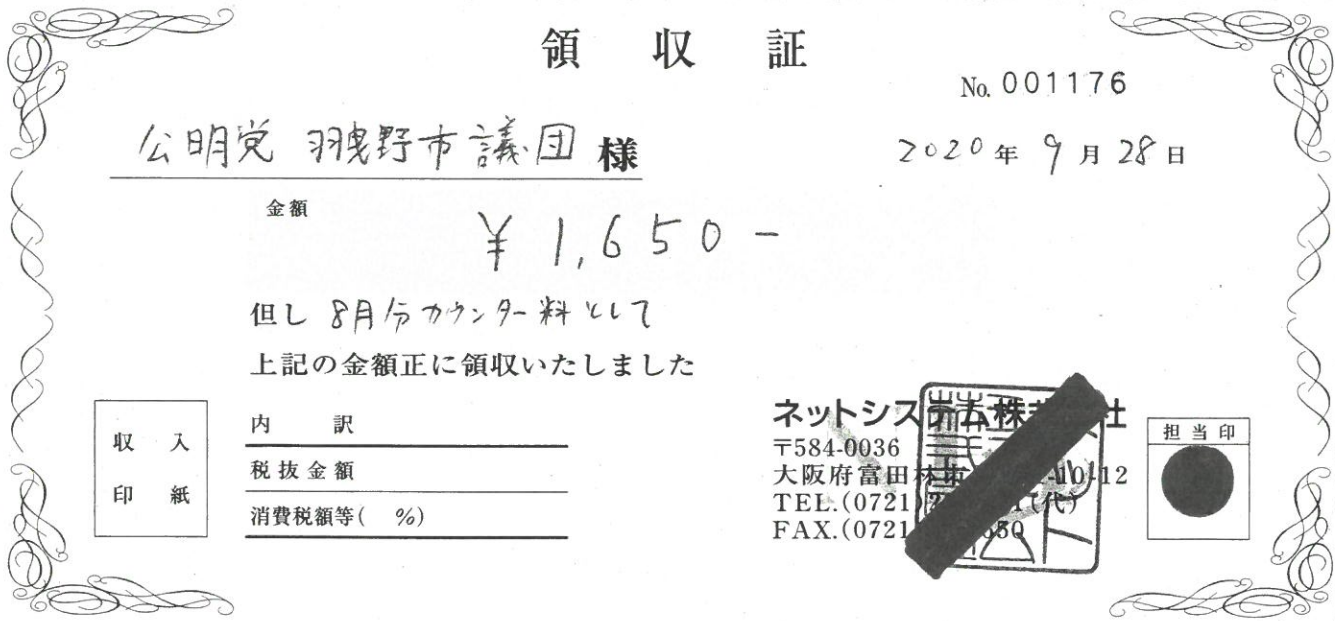 領収証
No. 001176
公明党 羽曳野市議団 様
2020年9月28日
金額
¥1,650-
但し 8月分カウンター料として
上記の金額正に領収いたしました
収入
印紙
内訳
税抜金額
消費税額等( %)
ネットシステム株式会社
〒584-0036
大阪府富田林市 -10-12
TEL.(0721) (代)
FAX.(0721) 650
担当印